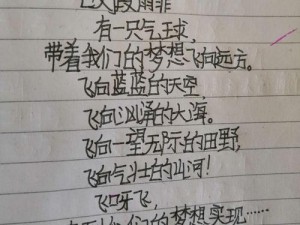 有一只气球，
带着我们的梦想飞向远方。
飞向蓝蓝的天空，
飞向汹涌的大海。
飞向一望无际的田野，
飞向气壮的山河！
飞呀飞，
我们的梦想实现……